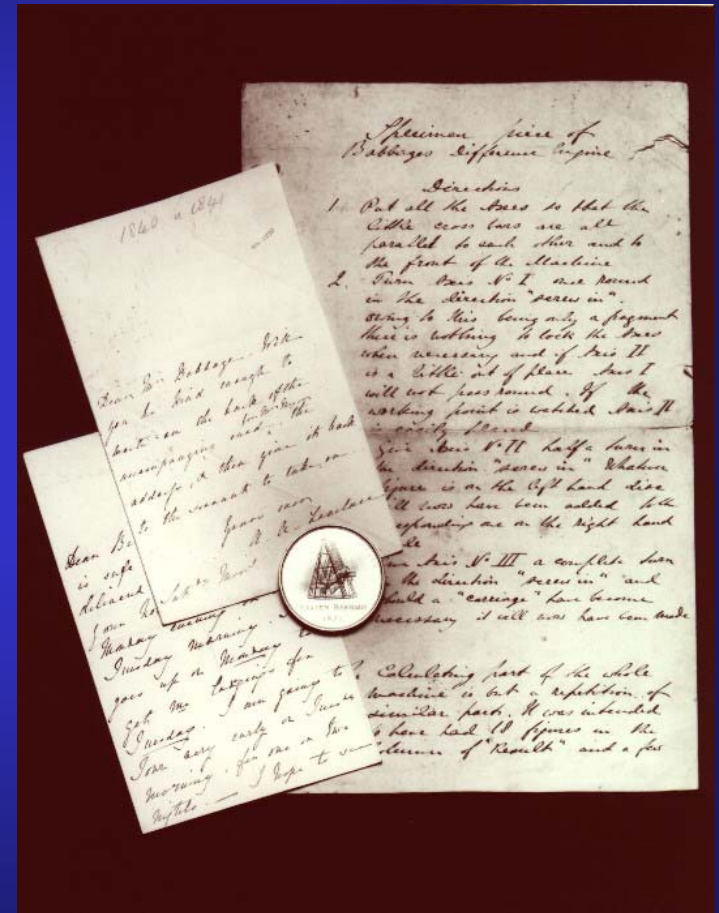 Specimen piece of
Babbages Difference Engine
Directions
1. Put all the Axes so that the
little cross bars are all
parallel to each other and to
the front of the Machine
2. Turn Axis No I one round
in the direction "screw in".
owing to this being only a fragment
there is nothing to lock the Axes
when necessary and if Axis II
is a little out of place Axis I
will not pass round. If the
working point is watched Axis II
is easily placed
Axis No II half a turn in
direction "screw in" Whatever
figure is on the left hand disc
now have been added to the
one on the right hand
Axis No III a complete turn
the direction "screw in" and
a "carriage" have become
necessary it will now have been made
Calculating part of the whole
machine is but a repetition of
similar parts. It was intended
have had 18 figures in the
column of "Result" and a few
1840 or 1841
Dear Mr Babbage. Will
you be kind enough to
write on the back of the
accompanying card, the
address, & then give it back
to the servant to take on
Yours
A. A. Lovelace
Dear
is safe
delivered
Town
Monday evening or
Tuesday morning.
goes up on Monday to
get me lodgings for
Tuesday. I am going to
Town very early on Tuesday
morning, for one or two
nights. — I hope to